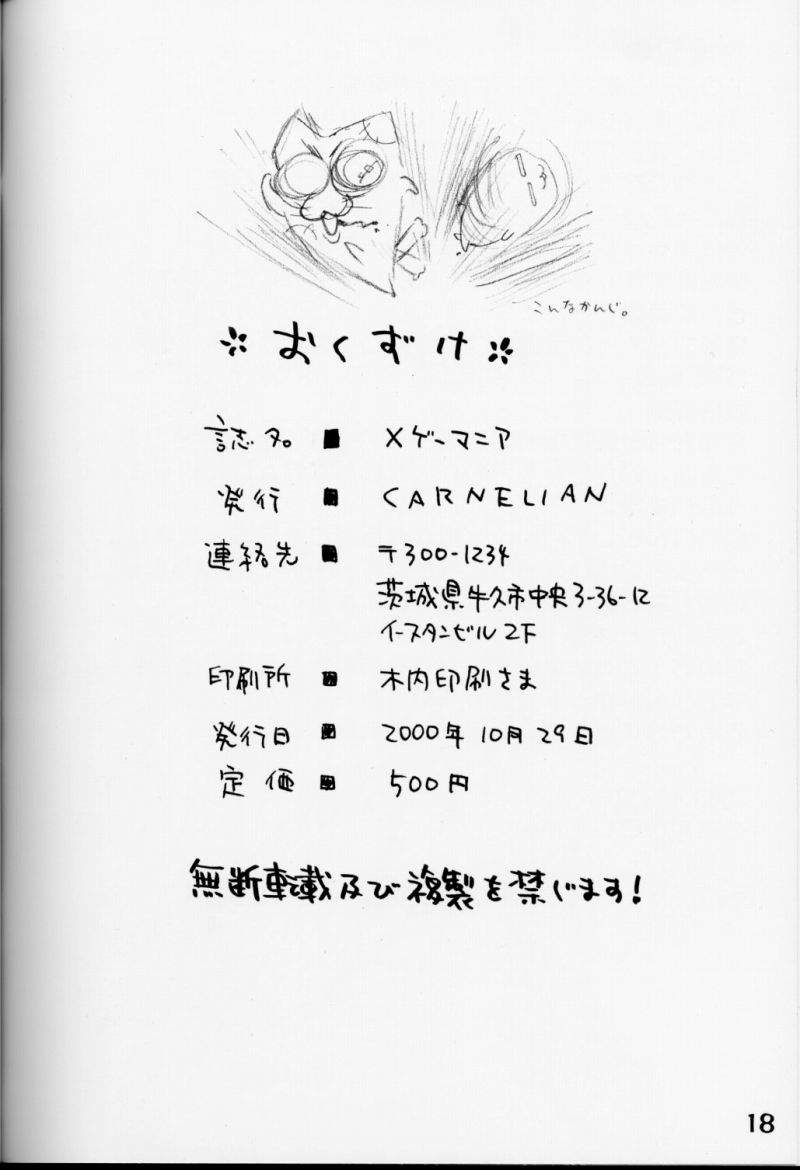 こんなかんじ。
* おくずけ *
誌名 ■ Xゲーマニア
発行 ■ CARNELIAN
連絡先 ■ 〒300-1234
茨城県牛久市中央3-36-12
イースタンビル2F
印刷所 ■ 木内印刷さま
発行日 ■ 2000年10月29日
定価 ■ 500円
無断転載及び複製を禁じます!
18